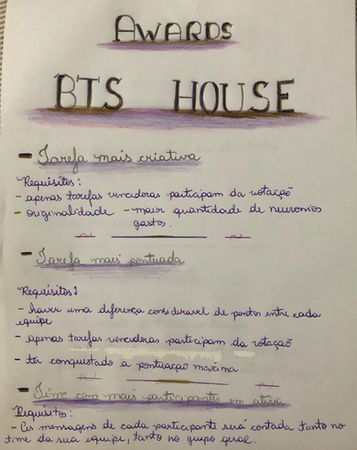 AWARDS
BTS HOUSE
- Tarefa mais criativa
Requisitos:
- apenas tarefas vencedoras participam da votação
- originalidade - maior quantidade de neuronios
gastos.
- Tarefa mais pontuada
Requisitos:
- haver uma diferença consideravel de pontos entre cada
equipe
- apenas tarefas vencedoras participam da votação
- ter conquistado a pontuação maxima
- Time com mais participantes em ativa
Requisitos:
- As mensagens de cada participante será contada tanto no
time da sua equipe, tanto no grupo geral.